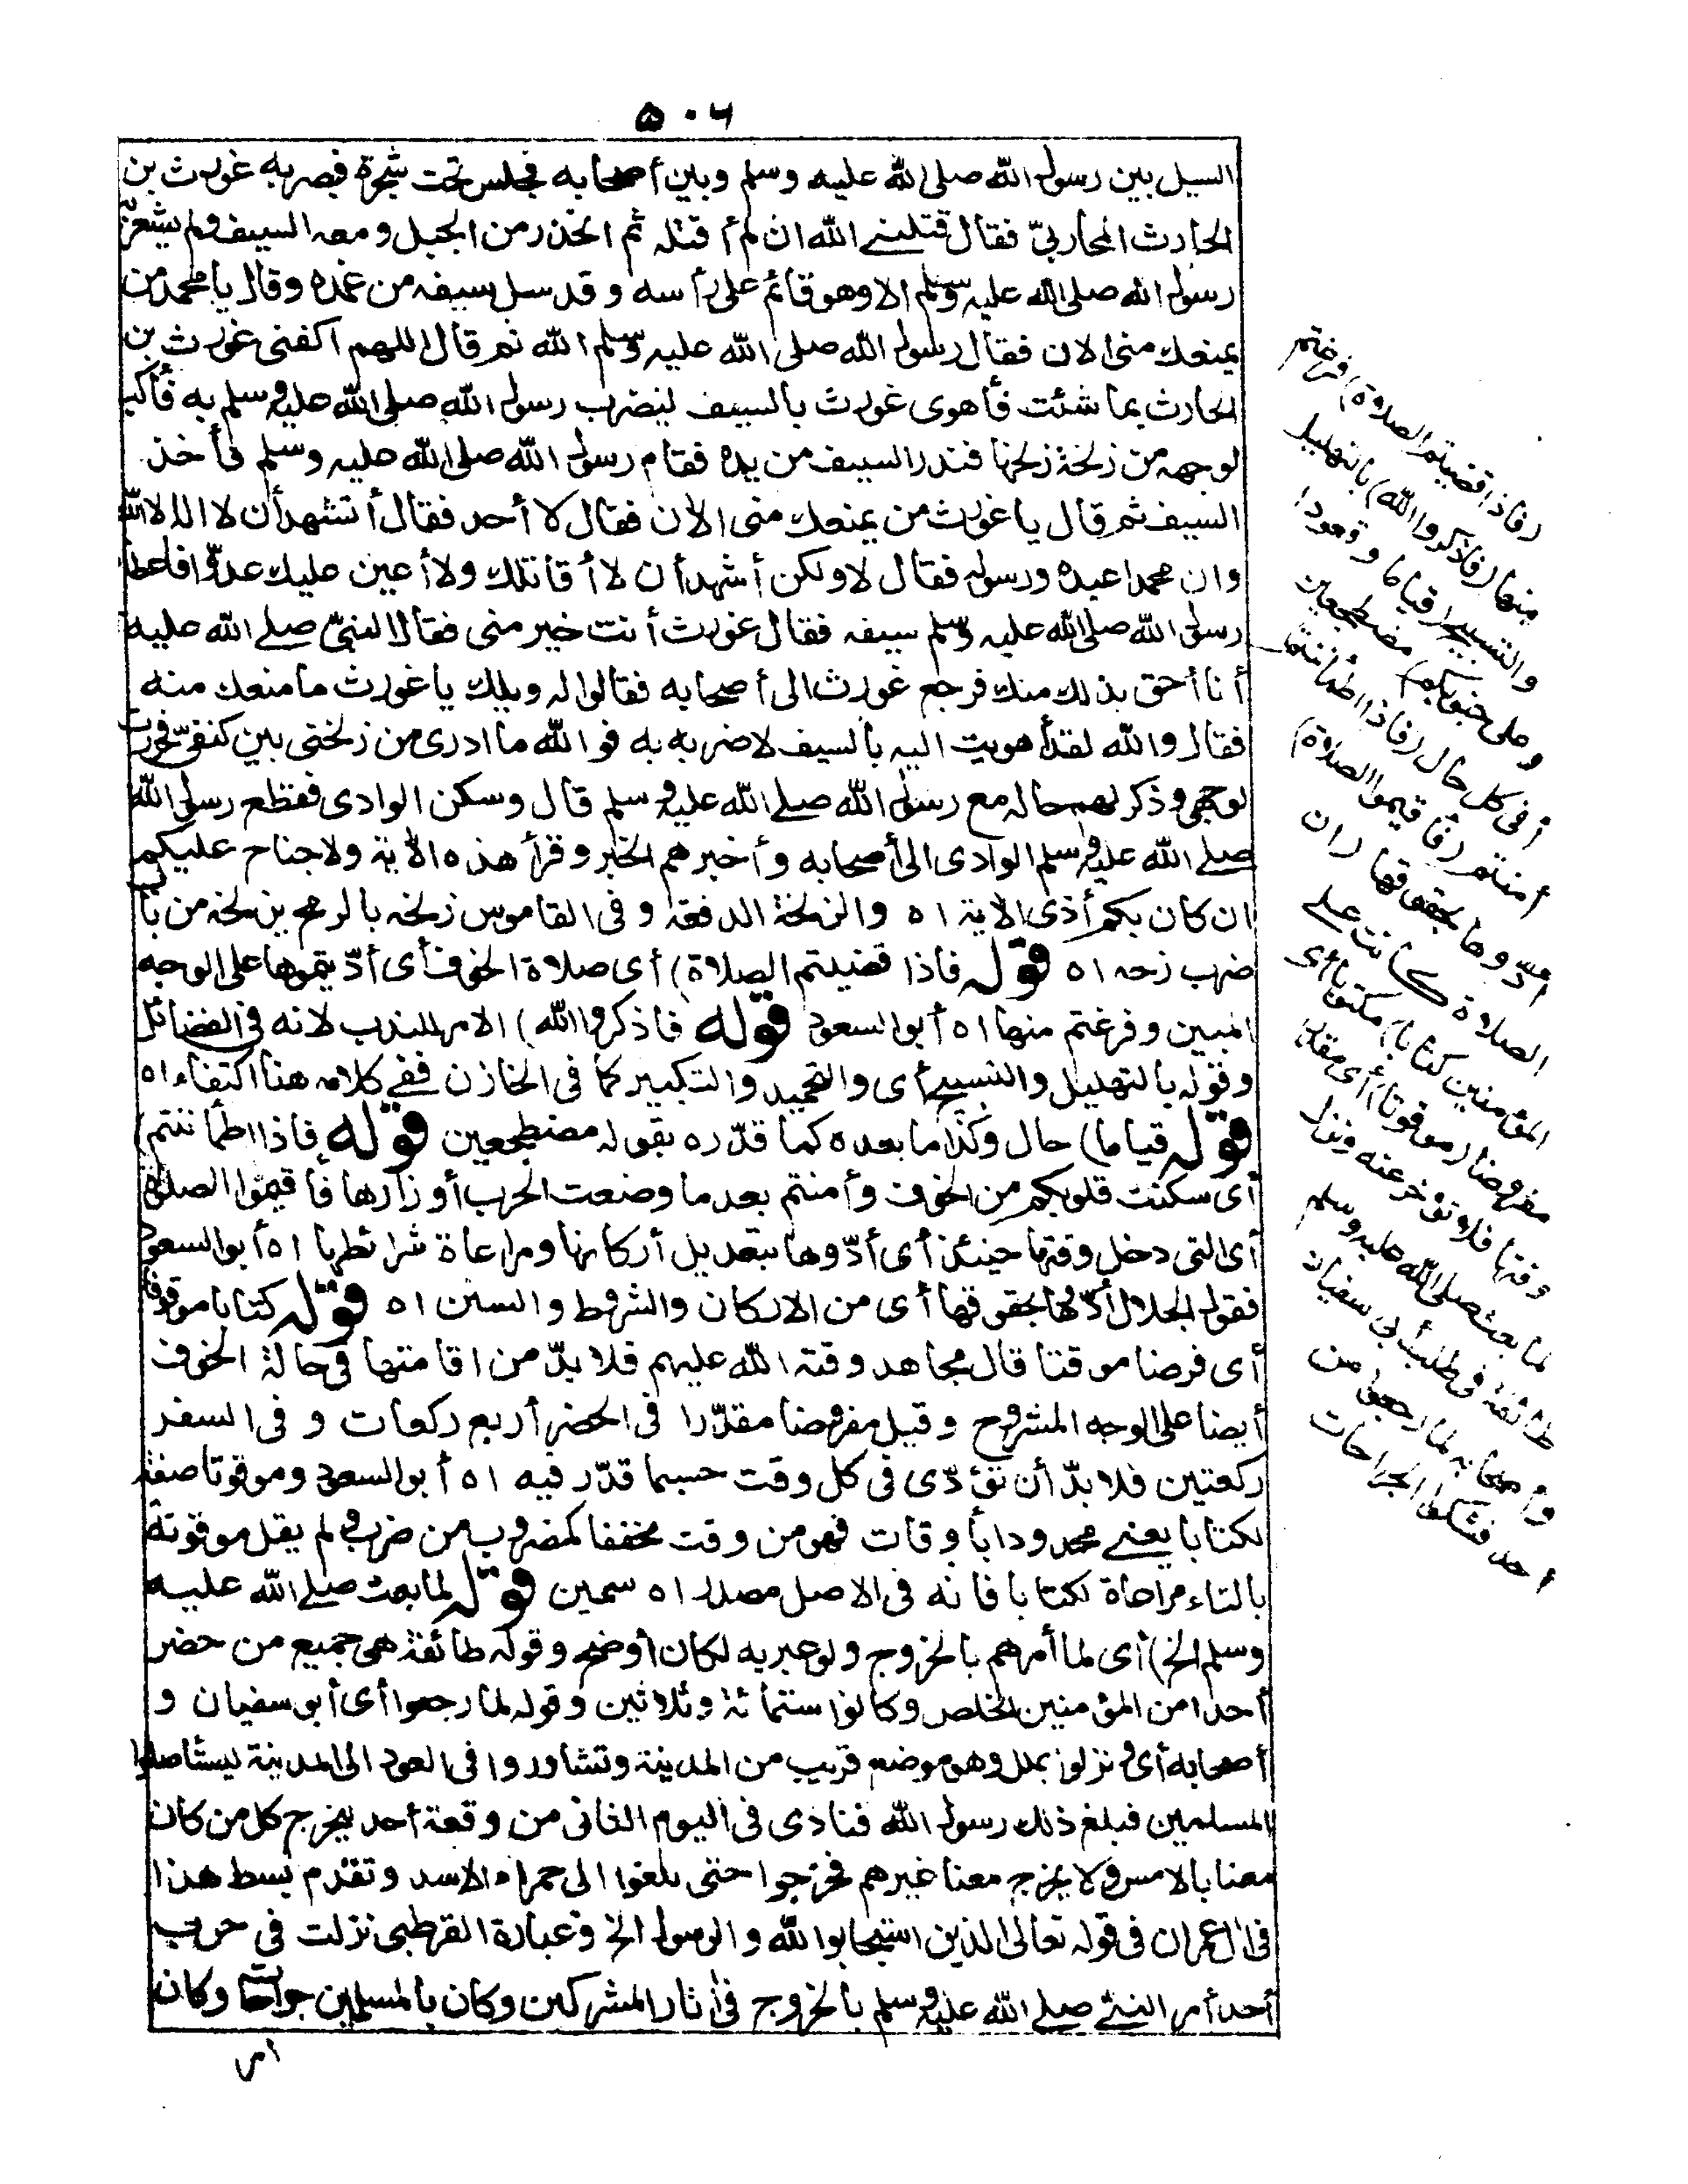 ٥٠٦
السيل بين رسول الله صلى الله عليه وسلم وبين أصحابه فجلس تحت شجرة فبصر به غورث بن
الحارث المحاربيّ فقال قتلني الله ان لم أقتله ثم انحذر من الجبل ومعه السيف ولم يشعر به
رسول الله صلى الله عليه وسلم الا وهو قائم على رأسه وقد سل سيفه من غمده وقال يا محمد من
يمنعك منى الآن فقال رسول الله صلى الله عليه وسلم الله ثم قال اللهم اكفنى غورث بن
الحارث بما شئت فأهوى غورث بالسيف ليضرب رسول الله صلى الله عليه وسلم به فأكب
لوجهه من زلخة زلخها فندر السيف من يده فقام رسول الله صلى الله عليه وسلم فأخذ
السيف ثم قال يا غورث من يمنعك منى الآن فقال لا أحد فقال أتشهد أن لا اله الا الله
وان محمدا عبده ورسوله فقال لا ولكن أشهد أن لا أقاتلك ولا أعين عليك عدوّا فاعطا
رسول الله صلى الله عليه وسلم سيفه فقال غورث أنت خير منى فقال النبيّ صلى الله عليه
أنا أحق بذلك منك فرجع غورث الى أصحابه فقالوا له ويلك يا غورث ما منعك منه
فقال والله لقد أهويت اليه بالسيف لاضربه به فوالله ما ادرى من زلخنى بين كتفىّ فخررت
لوجهى وذكر لهم حاله مع رسول الله صلى الله عليه وسلم قال وسكن الوادى فقطع رسول الله
صلى الله عليه وسلم الوادى الى أصحابه وأخبرهم الخبر وقرأ هذه الآية ولا جناح عليكم
ان كان بكم أذى الآية اه والزلخة الدفعة وفى القاموس زلخه بالرمح يزلخه من باب
ضرب زحه اه قوله فاذا قضيتم الصلاة) أى صلاة الخوف أى أدّيتموها على الوجه
المبين وفرغتم منها اه أبو السعود قوله فاذكروا الله) الامر للندب لانه فى الفضائل
وقوله بالتهليل والتسبيح أى والتحميد والتكبير كما فى الخازن ففى كلامه هنا اكتفاء اه
قوله قياما) حال وكذا ما بعده كما قدّره بقوله مضطجعين قوله فاذا اطمأننتم)
أى سكنت قلوبكم من الخوف وأمنتم بعدما وضعت الحرب أوزارها فأقيموا الصلاة
أى التى دخل وقتها حينئذ أى أدّوها بتعديل أركانها ومراعاة شرائطها اه أبو السعود
فقول الجلال أدّوها بحقوقها أى من الاركان والشروط والسنن اه قوله كتابا موقوتا
أى فرضا موقتا قال مجاهد وقته الله عليهم فلا بدّ من اقامتها فى حالة الخوف
أيضا على الوجه المشروح وقيل مفروضا مقدّرا فى الحضر أربع ركعات وفى السفر
ركعتين فلا بدّ أن تؤدّى فى كل وقت حسبما قدّر فيه اه أبو السعود وموقوتا صفة
لكتابا يعنى محدودا بأوقات فهو من وقت مخففا كمضروب من ضرب ولم يقل موقوتة
بالتاء مراعاة لكتابا فانه فى الاصل مصدر اه سمين قوله لما بعث صلى الله عليه
وسلم الخ) أى لما أمرهم بالخروج ولو عبر به لكان أوضح وقوله طائفة هى جميع من حضر
أحدا من المؤمنين الخلص وكانوا ستمائة وثلاثين وقوله لما رجعوا أى أبو سفيان و
أصحابه أى ونزلوا بملل وهو موضع قريب من المدينة وتشاوروا فى العود الى المدينة ليستأصلوا
المسلمين فبلغ ذلك رسول الله فنادى فى اليوم الثانى من وقعة أحد ليخرج كل من كان
معنا بالامس ولا يخرج معنا غيرهم فخرجوا حتى بلغوا الى حمراء الاسد وتقدم بسط هذا
فى آل عمران فى قوله تعالى الذين استجابوا لله والرسول الخ وعبارة القرطبى نزلت فى حرب
أحد أمر النبىّ صلى الله عليه وسلم بالخروج فى آثار المشركين وكان بالمسلمين جراحات وكان
(فاذا قضيتم الصلاة) فرغتم
منها (فاذكروا الله) بالتهليل
والتسبيح (قياما وقعودا
وعلى جنوبكم) مضطجعين
أى فى كل حال (فاذا اطمأننتم)
أمنتم (فأقيموا الصلاة)
أدّوها بحقوقها (ان
الصلاة كانت على
المؤمنين كتابا) مكتوبا أى
مفروضا (موقوتا) أى مقدّرا
وقتها فلا تؤخر عنه ونزل
لما بعث صلى الله عليه وسلم
طائفة فى طلب أبى سفيان
وأصحابه لما رجعوا من
أحد فشكوا الجراحات